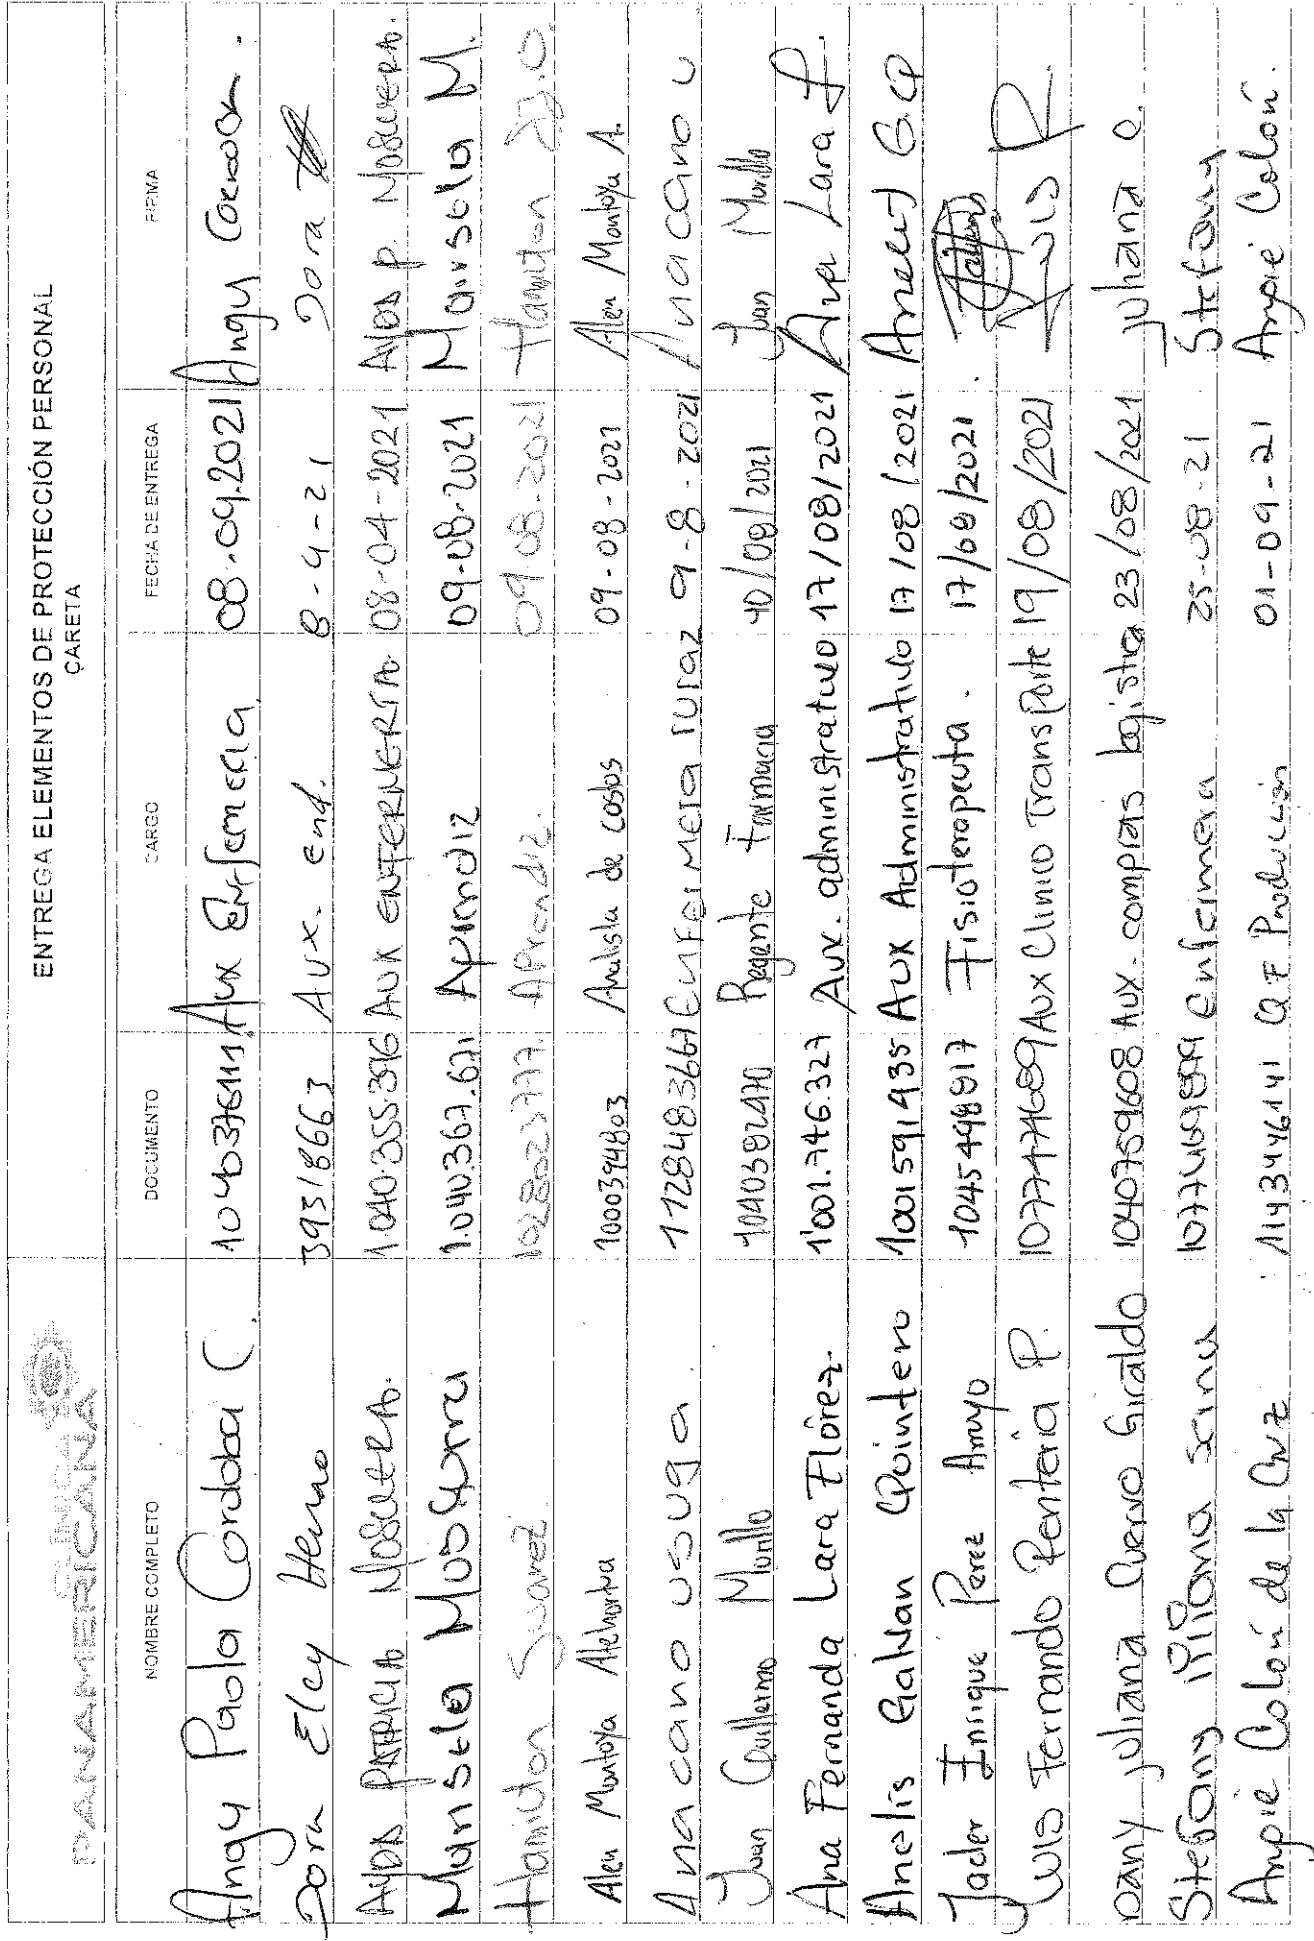 CLÍNICA
PANAMERICANA
ENTREGA ELEMENTOS DE PROTECCIÓN PERSONAL
CARETA
NOMBRE COMPLETO DOCUMENTO CARGO FECHA DE ENTREGA FIRMA
Angy Paola Cordoba C. Aux Enfermeria 08.09.2021 Angy Cordoba.
Dora Eley 39318663 Aux. enf. 8-9-21 Dora
AYDA PATRICIA MOSQUERA. 1.040.355.396 AUX ENFERMERÍA. 08-04-2021 AYDA P. MOSQUERA.
Marisela Mosquera 1.040.367.671 Aprendiz 09-08-2021 Marisela M.
Hamilton Suarez 1028023777. Aprendiz. 09.08.2021 Hamilton
Alen Montoya Atehortua 1000394803 Analista de costos 09-08-2021 Alen Montoya A.
Ana cano usuga 1128483667 Enfermera 9-8-2021 Ana cano u
Juan Guillermo Murillo 1040382470 Regente Farmacia 10/08/2021 Juan Murillo
Ana Fernanda Lara Flórez. 1'001.746.327 Aux. administrativo 17/08/2021 Ana Lara F.
Anelis Galvan Quintero 1001591435 Aux Administrativo 17/08/2021 Anelis G.Q
Jader Enrique Perez Amayo 1045498917 Fisioterapeuta. 17/08/2021.
Luis Fernando Renteria P. 1077474689 Aux Clinico Transporte 19/08/2021 Luis R
Dany Juliana Cuervo Giraldo 1040759608 Aux. compras logistica 23/08/2021 Juliana C.
Stefany enfermera 25-08-21 Stefany
Angie Colón de la Cruz 1143446141 QF Producción 01-09-21 Angie Colón.